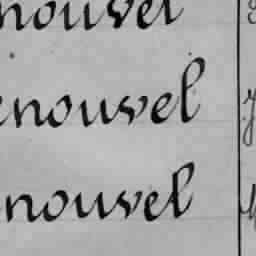 nouvel
enouvel
nouvel